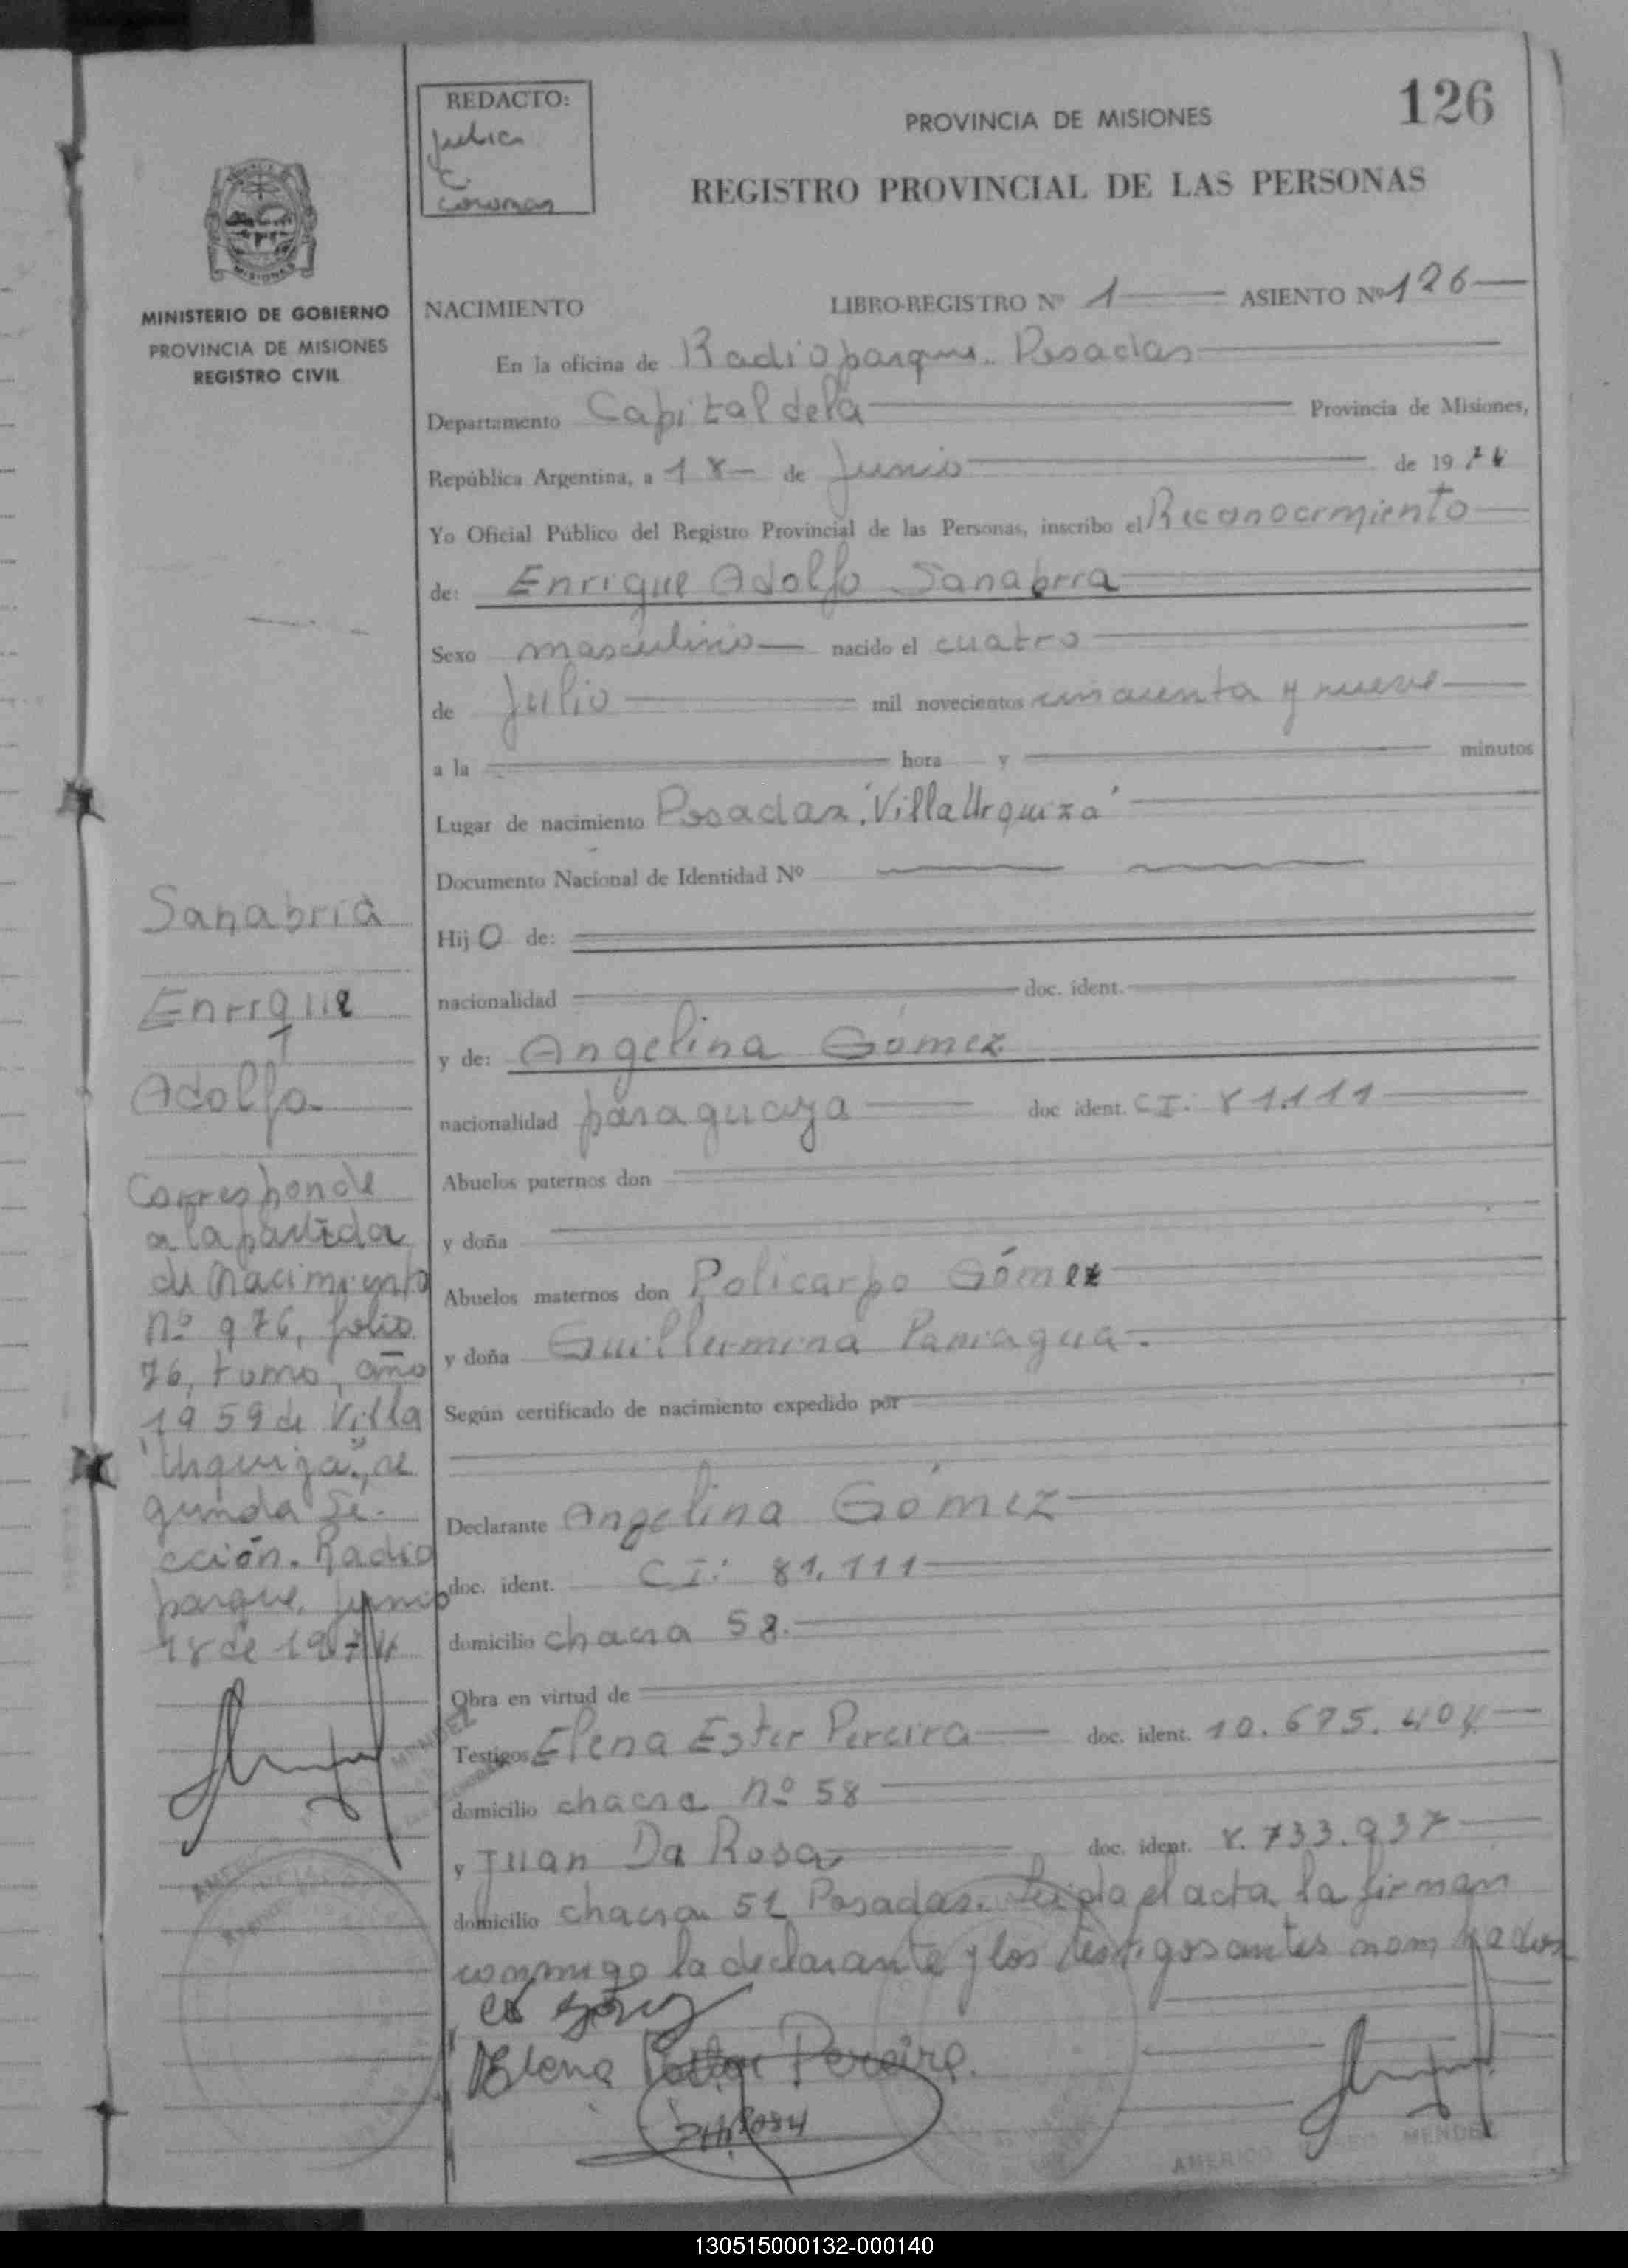 126
REDACTO:
Julia
C.
PROVINCIA DE MISIONES
REGISTRO PROVINCIAL DE LAS PERSONAS
MISIONES
MINISTERIO DE GOBIERNO
PROVINCIA DE MISIONES
REGISTRO CIVIL
NACIMIENTO LIBRO-REGISTRO Nº 1 ASIENTO Nº 126
En la oficina de Radioparque.. Posadas
Departamento Capital de la Provincia de Misiones,
República Argentina, a 18 de Junio de 1974
Yo Oficial Público del Registro Provincial de las Personas, inscribo el Reconocimiento
de: Enrique Adolfo Sanabria
Sexo masculino nacido el cuatro
de Julio mil novecientos cincuenta y nueve
a la hora y minutos
Lugar de nacimiento Posadas, "Villa Urquiza"
Documento Nacional de Identidad Nº
Hijo de:
nacionalidad doc. ident.
y de: Angelina Gómez
nacionalidad paraguaya doc ident. CI: 81.111
Abuelos paternos don
y doña
Abuelos maternos don Policarpo Gómez
y doña Guillermina Paniagua.
Según certificado de nacimiento expedido por
Declarante Angelina Gómez
doc. ident. CI: 81.111
domicilio chacra 58.
Obra en virtud de
Testigos Elena Ester Pereira doc. ident. 10.675.404
domicilio chacra nº 58
y Juan Da Rosa doc. ident. 8.733.937
domicilio chacra 51 Posadas. Leida el acta la firman
conmigo la declarante y los testigos antes nombrados
Elena Pereira.
AMERICO MENDEZ
Sanabria
Enrique
Adolfo
Corresponde
a la partida
de nacimiento
nº 976, folio
76, tomo, año
1959 de Villa
"Urquiza", se
gunda Se-
cción. Radio
parque, Junio
18 de 1974
130515000132-000140